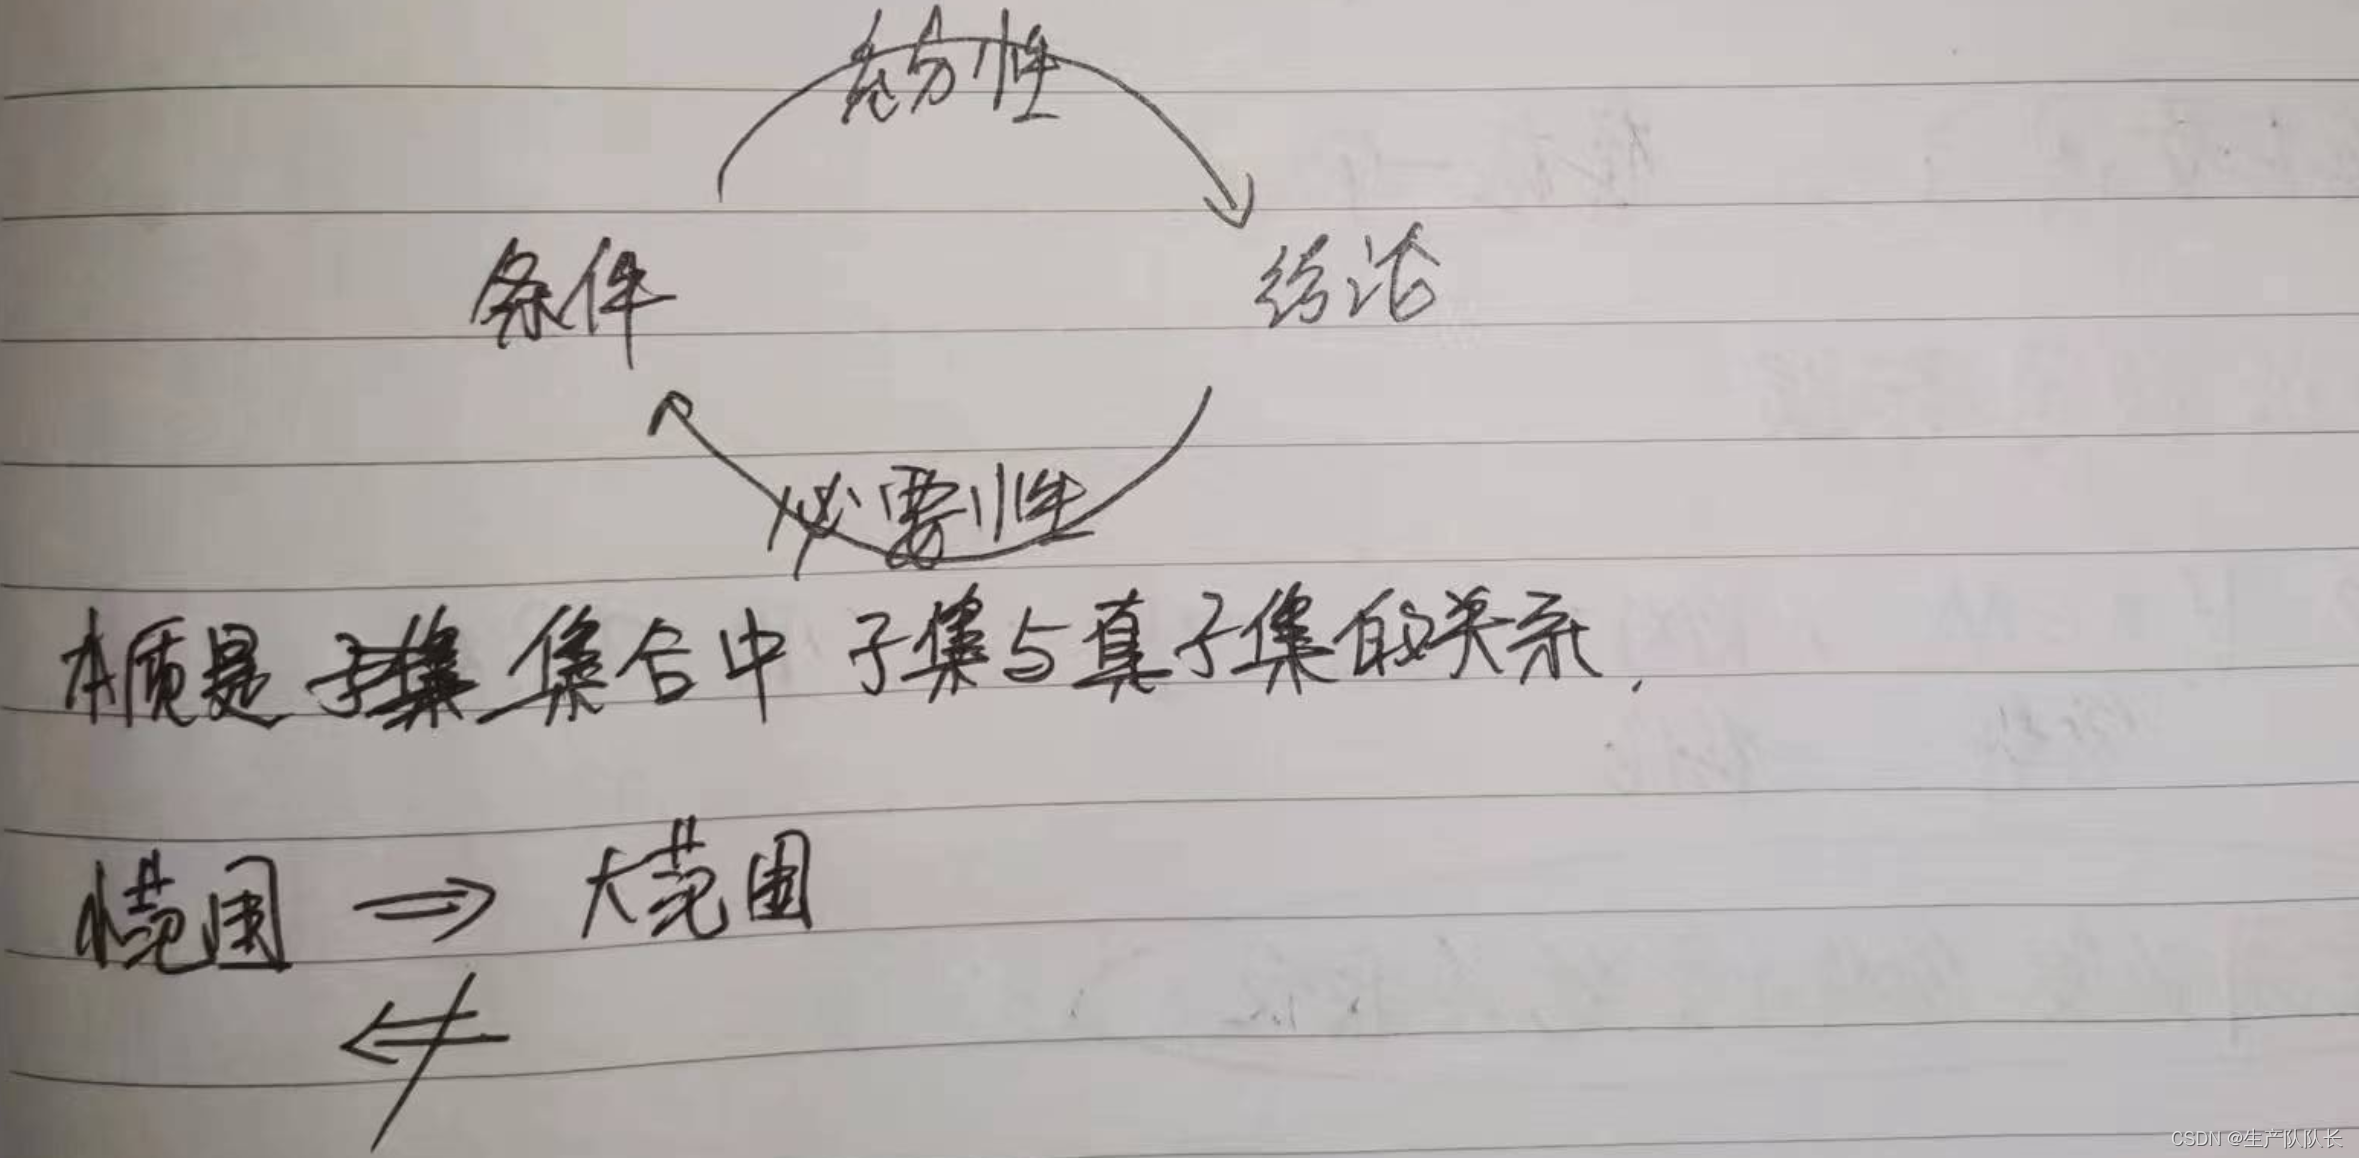 充分性
条件 结论
必要性
本质是 子集 集合中 子集与真子集的关系.
小范围 ⇒ 大范围
⇍
CSDN @生产队队长